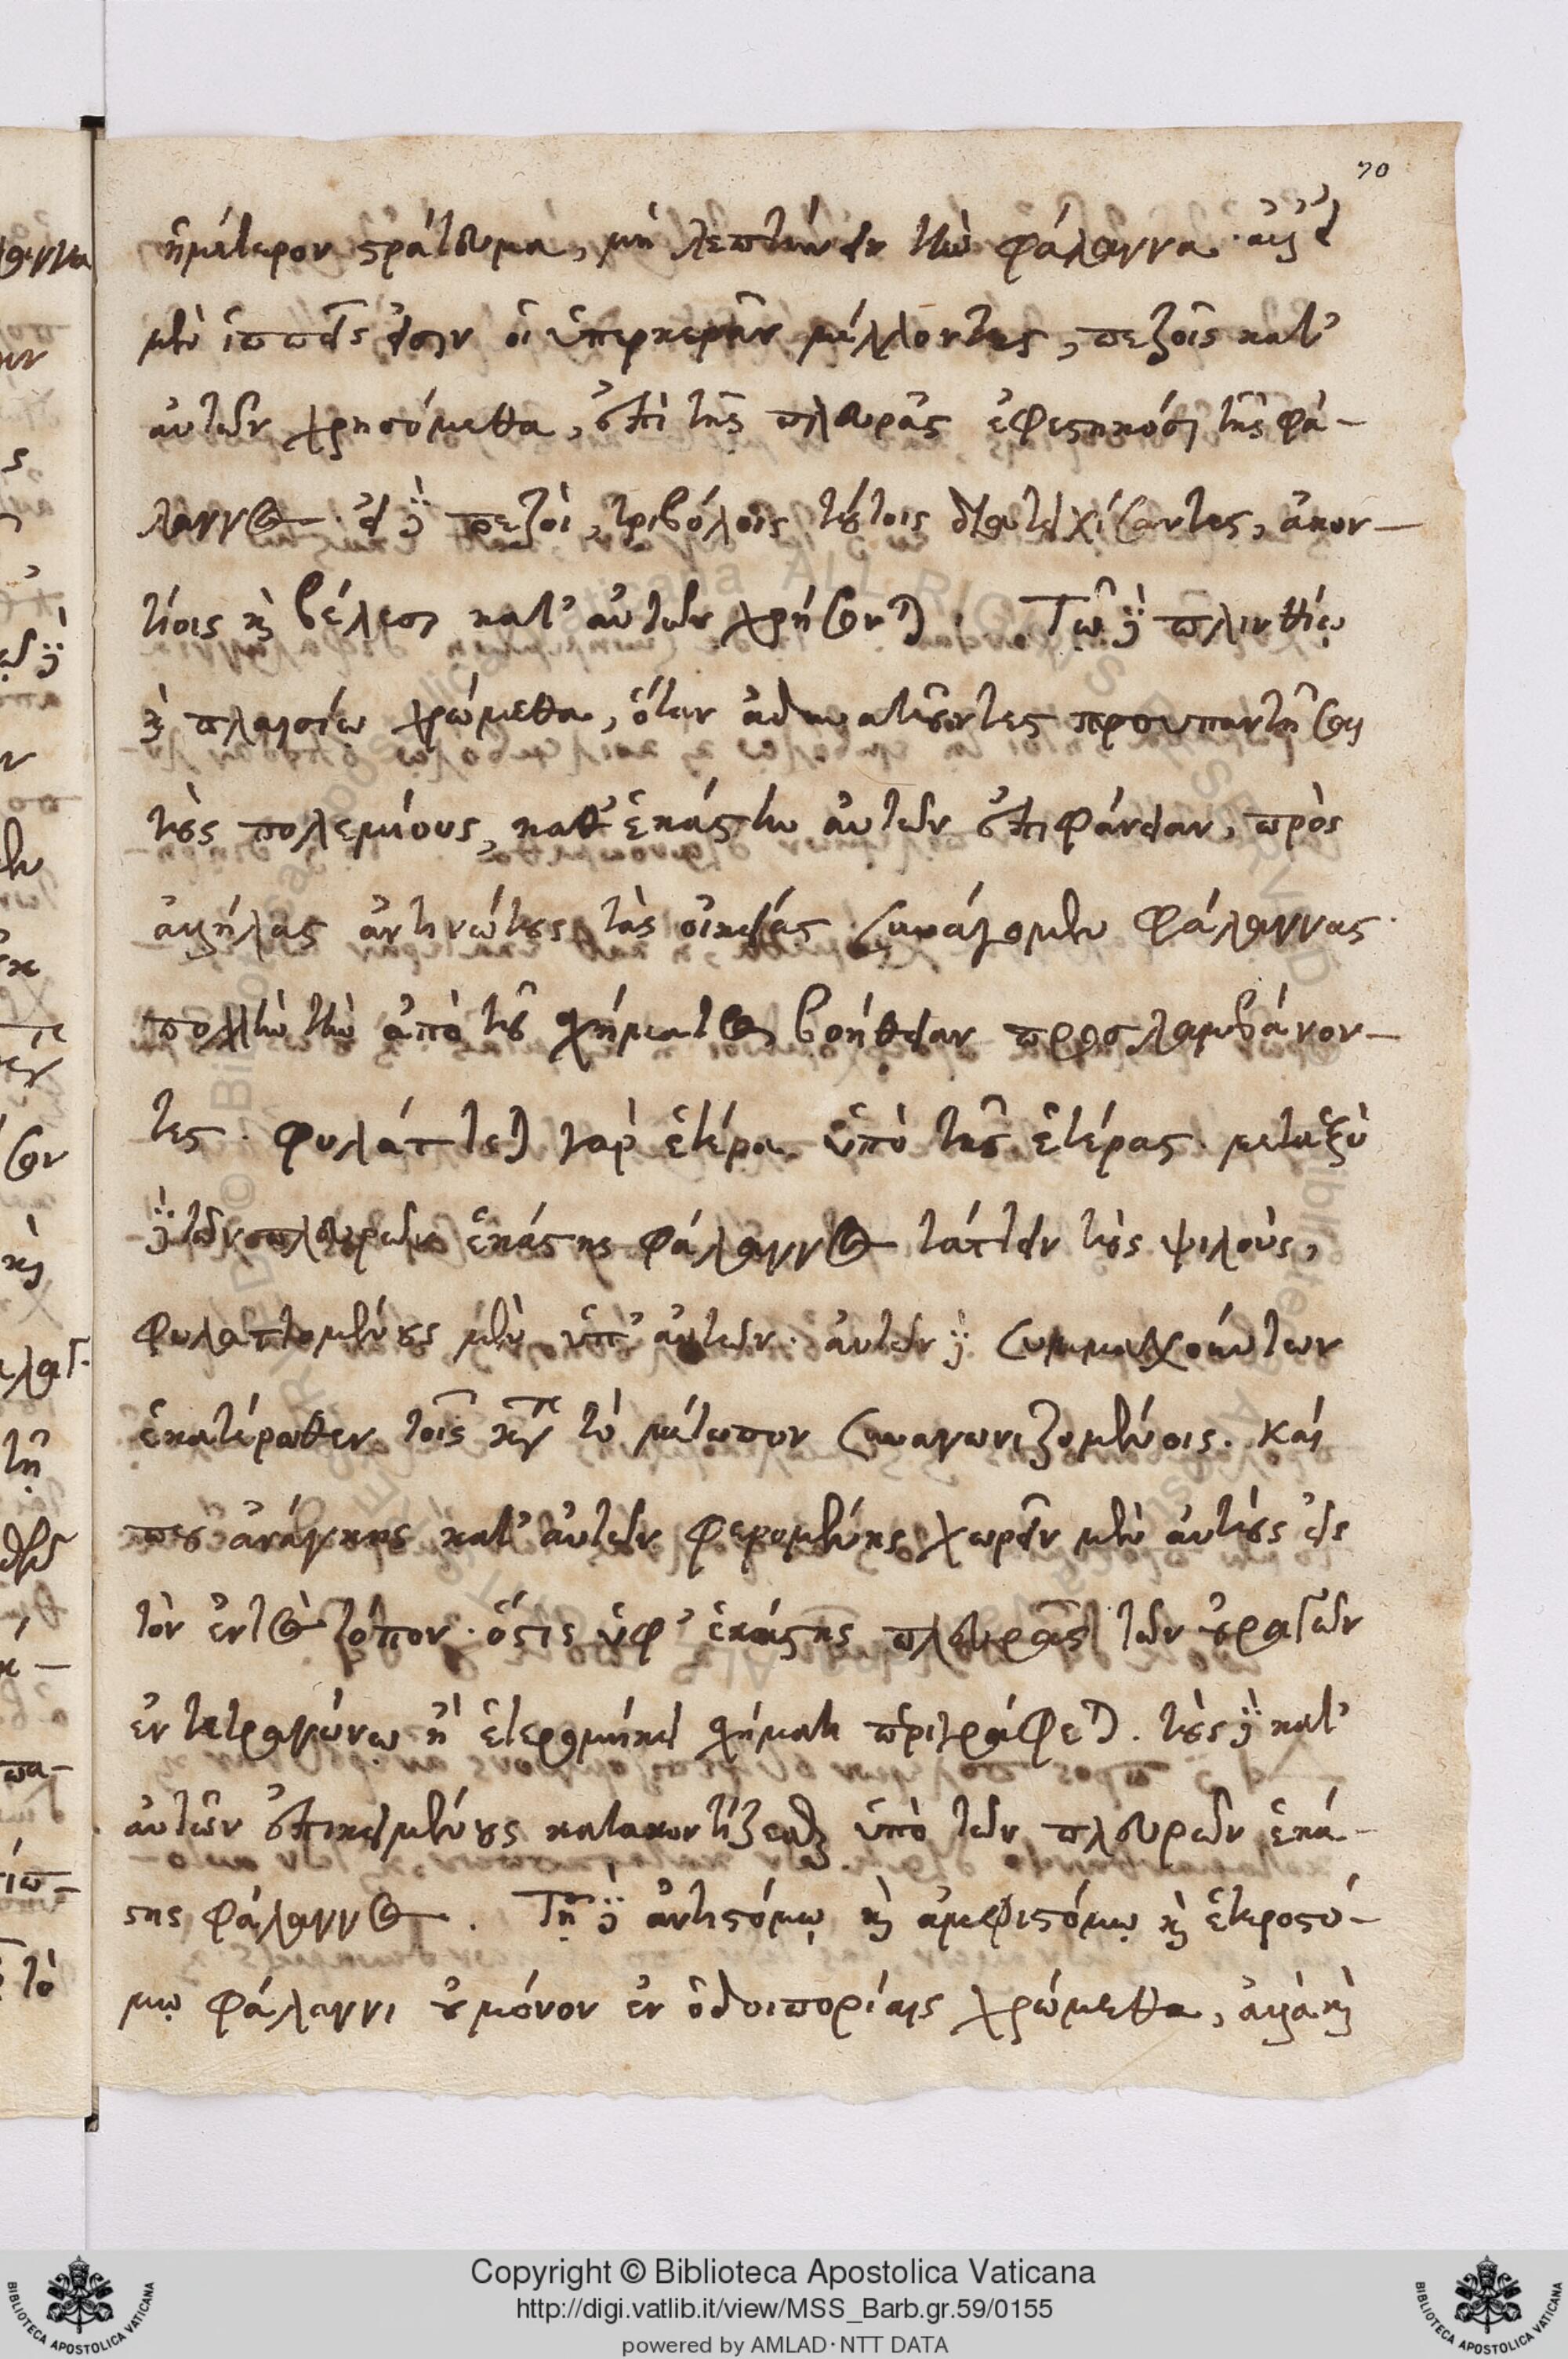 70
ἡμέτερον στράτευμα, μὴ λεπτύνειν τὴν φάλαγγα. ἀλλ' εἰ
μὲν ἱππεῖς εἰσιν οἱ ὑπερκερᾶν μέλλοντες, πεζοῖς κατ'
αὐτῶν χρησόμεθα, ἐπὶ τῆς πλευρᾶς ἐφεστηκόσι τῆς φά-
λαγγος. εἰ δὲ πεζοὶ, τριβόλοις τούτοις διατειχίσαντες, ἀκον-
τίοις καὶ βέλεσι κατ' αὐτῶν χρήσονται. Τῷ δὲ πλινθίῳ
καὶ πλαισίῳ χρώμεθα, ὅταν ἀδυνατοῦντες προυπαντῆσαι
τοὺς πολεμίους, καθ' ἑκάστην αὐτῶν ἐπιφάνειαν, πρὸς
ἀλλήλας ἀντινώτους τὰς οἰκείας συνάγομεν φάλαγγας.
πολλὴν τὴν ἀπὸ τοῦ σχήματος βοήθειαν προσλαμβάνον-
τες. φυλάττεται γὰρ ἑτέρα ὑπὸ τῆς ἑτέρας. μεταξὺ
δὲ τῶν πλευρῶν ἑκάστης φάλαγγος τάττειν τοὺς ψιλοὺς,
φυλαττομένους μὲν ὑπ' αὐτῶν. αὐτῶν δὲ συμμαχούντων
ἑκατέρωθεν τοῖς κατὰ τὸ μέτωπον συναγωνιζομένοις. καί
που ἀνάγκης κατ' αὐτῶν φερομένης χωρεῖν μὲν αὐτοὺς εἰς
τὸν ἐντὸς τόπον. ὅστις ὑφ' ἑκάστης πλευρᾶς τῶν στρατῶν
ἐν τετραγώνῳ ἢ ἑτερομήκει σχήματι περιγράφεται. τοὺς δὲ κατ'
αὐτῶν ἐπικειμένους κατακοντίζεσθαι ὑπὸ τῶν πλευρῶν ἑκά-
στης φάλαγγος. Τῇ δὲ ἀντιστόμῳ καὶ ἀμφιστόμῳ καὶ ἑτεροστό-
μῳ φάλαγγι οὐ μόνον ἐν ὁδοιπορίαις χρώμεθα, ἀλλὰ καὶ
Copyright © Biblioteca Apostolica Vaticana
http://digi.vatlib.it/view/MSS_Barb.gr.59/0155
powered by AMLAD·NTT DATA
BIBLIOTECA APOSTOLICA VATICANA
BIBLIOTECA APOSTOLICA VATICANA